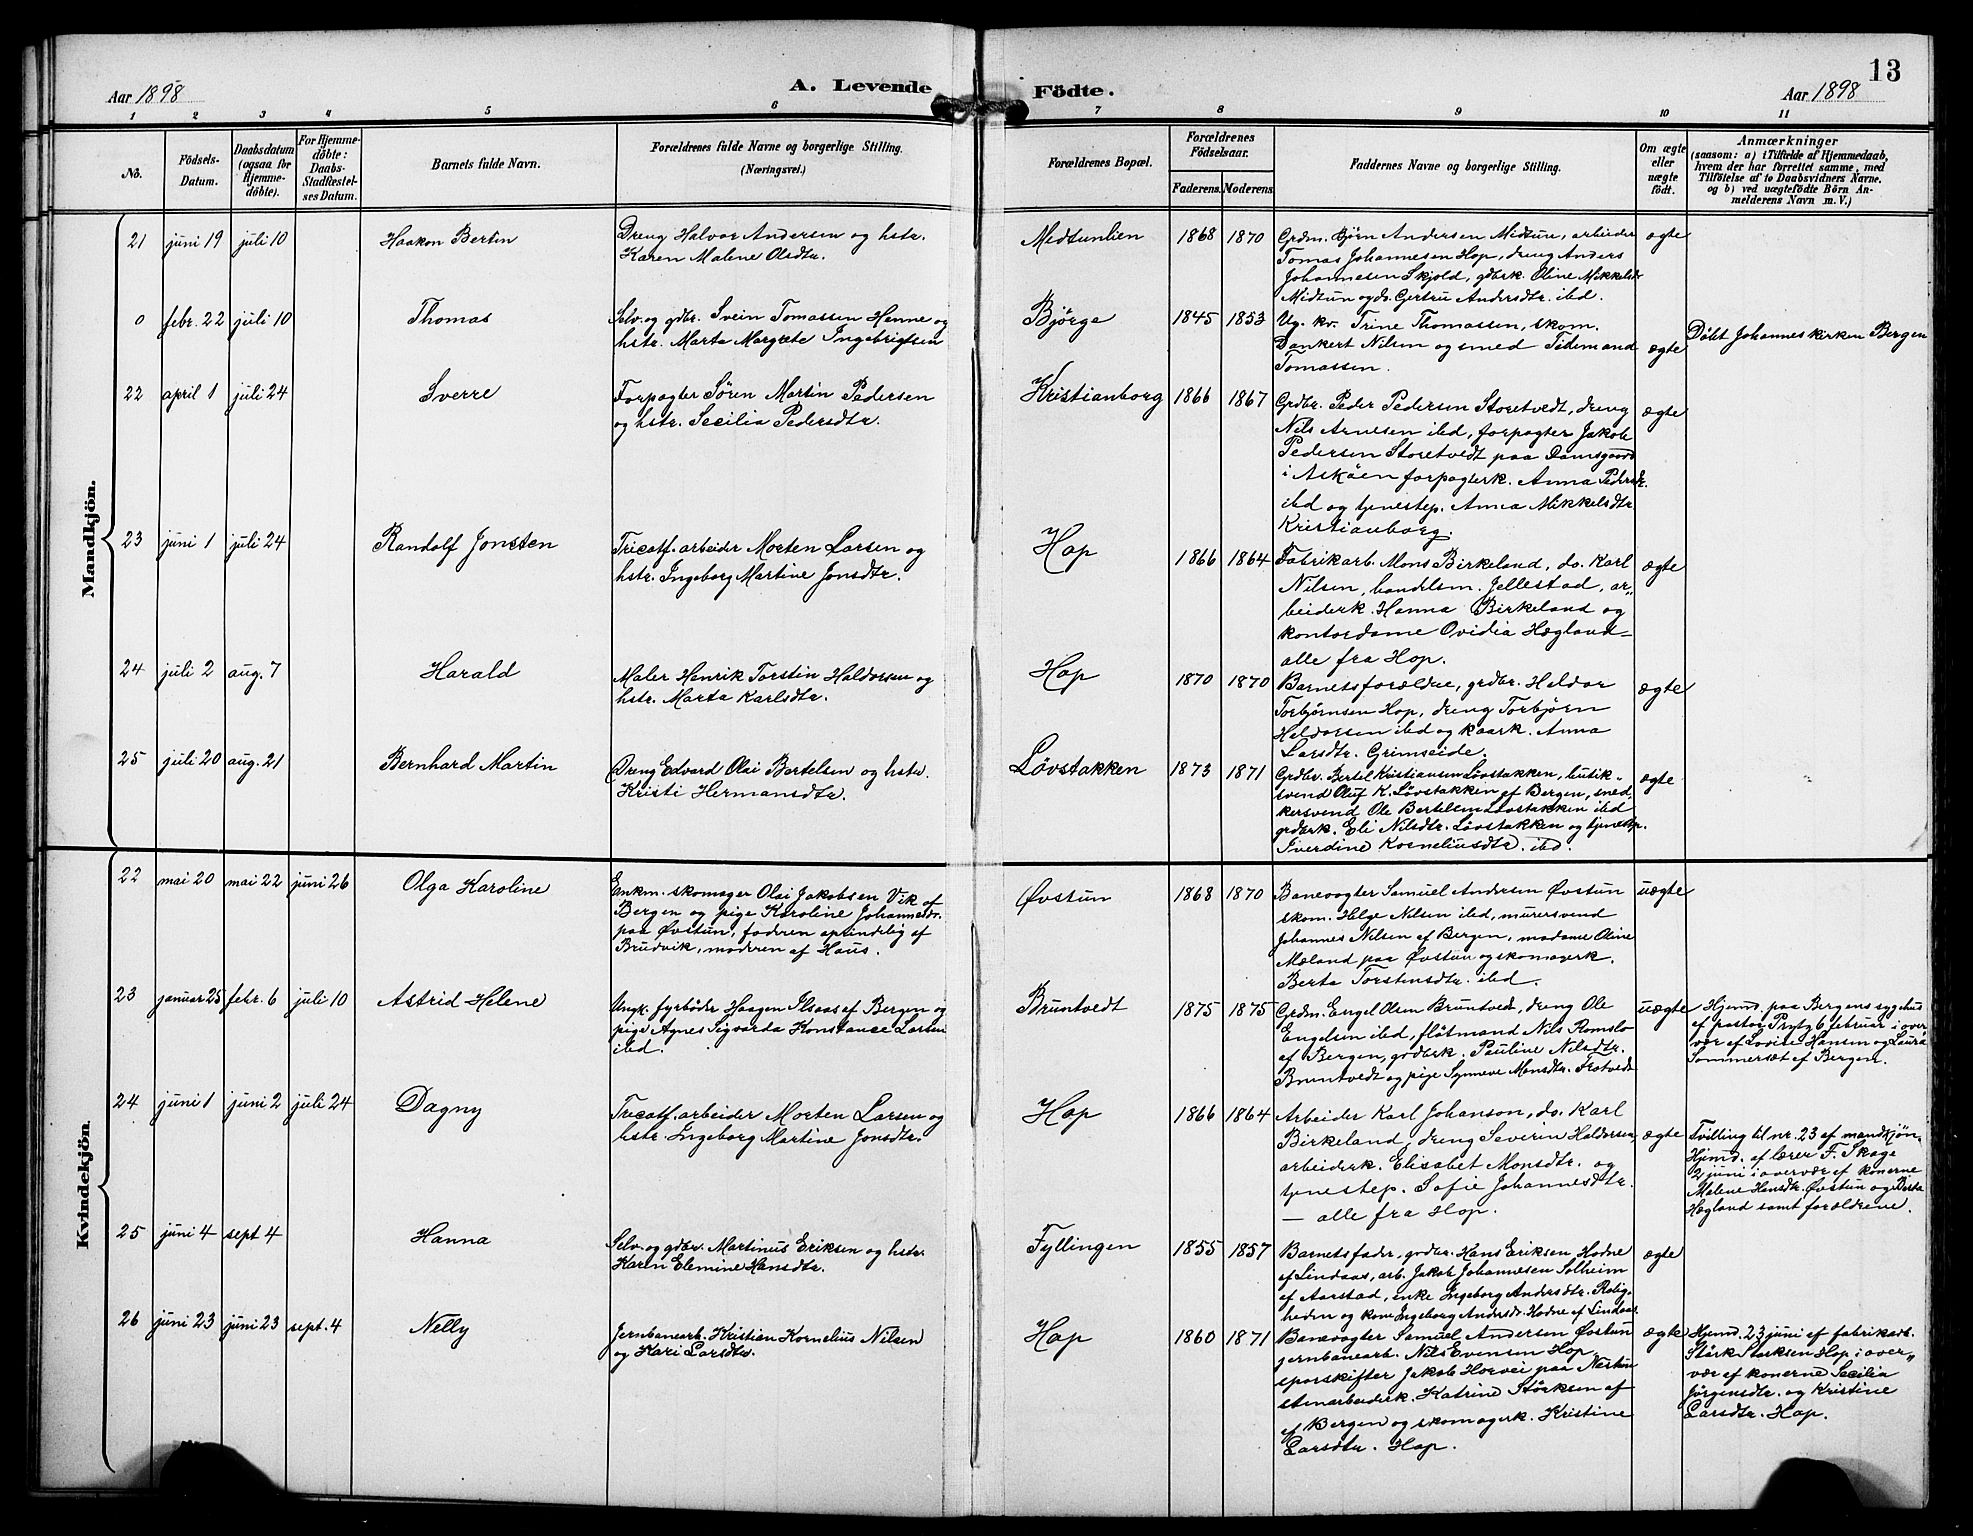 13
Aar 1898
A. Levende Födte.
Aar 1898
1 2 3 4 5 6 7 8 9 10 11
No.
Födsels-
Datum.
Daabsdatum
(ogsaa for
Hjemme-
döbte).
For Hjemme-
döbte:
Daabs-
Stadfæstel-
ses Datum.
Barnets fulde Navn.
Forældrenes fulde Navne og borgerlige Stilling.
(Næringsvei.)
Forældrenes Bopæl.
Forældrenes
Födselsaar.
Faderens. Moderens.
Faddernes Navne og borgerlige Stilling.
Om ægte
eller
uægte
födt.
Anmærkninger
(saasom: a) i Tilfælde af Hjemmedaab,
hvem der har forrettet samme, med
Tilföielse af to Daabsvidners Navne.
og b) ved uægtefödte Börn An-
melderens Navn m. V.)
Mandkjön.
21 juni 19 juli 10 Haakon Bertin
Dreng Halvor Andersen og hstr.
Karen Malene Olsdtr.
Midtunlien 1868 1870
Grdm. Bjørn Andersen Midtun, arbeider
Tomas Johannesen Hop, dreng Anders
Johannesen Skjold, gdbrk. Oline Mikkelsdtr
Midtun og ds. Gertru Andersdtr. ibd.
ægte
0 febr. 22 juli 10 Thomas
Selv. og gdbr. Svein Tomassen Henne og
hstr. Marta Margrete Ingebrigtsen
Björge 1845 1853
Ug. kv. Trine Thomassen, skom.
Dankert Nilsen og smed Tidemand
Tomassen.
ægte
Döbt Johanneskirken Bergen
22 april 1 juli 24 Sverre
Forpagter Søren Martin Pedersen
og hstr. Secilia Pedersdtr.
Kristianborg 1866 1867
Grdbr. Peder Pedersen Storetvedt, dreng
Nils Arnesen ibd, forpagter Jakob
Pedersen Storetvedt paa Damsgaard
i Askøen forpagterk. Anna Pedersdtr.
ibd og tjenestep. Anna Mikkelsdtr
Kristianborg.
ægte
23 juni 1 juli 24 Randolf Jonsten
Tricotf. arbeider Morten Larsen og
hstr. Ingeborg Martine Jonsdtr.
Hop 1866 1864
Fabrikarb. Mons Birkeland, do. Karl
Nilsen, handelsm. Jellestad, ar„
beiderk. Hanna Birkeland og
kontordame Ovidia Hægland=
alle fra Hop.
ægte
24 juli 2 aug. 7 Harald
Maler Henrik Torstin Haldorsen og
hstr. Marta Karlsdtr.
Hop 1870 1870
Barnets forældre, grdbr. Haldor
Torbjørnsen Hop, dreng Torbjörn
Haldorsen ibd og kaark. Anna
Larsdtr. Grimseide.
ægte
25 juli 20 aug. 21 Bernhard Martin
Dreng Edvard Olai Bertelsen og hstr.
Kristi Hermansdtr.
Løvstakken 1873 1871
Grdbr. Bertel Kristiansen Løvstakken, butik„
svend Oluf K. Løvstakken af Bergen, sned„
kersvend Ole Bertelsen Løvstakken ibd
grdbrk. Eli Nilsdtr. Løvstakken og tjenestp.
Iverdine Korneliusdtr. ibd.
ægte
Kvindekjön.
22 mai 20 mai 22 juni 26 Olga Karoline
Enkm. skomager Olai Jakobsen Vik af
Bergen og pige Karoline Johannesdtr.
paa Øvstun, faderen oprindelig af
Brudvik, moderen af Haus.
Øvstun 1868 1870
Banevogter Samuel Andersen Øvstun
skom. Helge Nilsen ibd, murersvend
Johannes Nilsen af Bergen, madame Oline
Mæland paa Øvstun og skomagerk.
Berta Torstensdtr. ibd.
uægte
23 januar 25 febr. 6 juli 10 Astrid Helene
Ungk. fyrbøder Haagen Ilsaas af Bergen og
pige Agnes Sigvarda Konstance Larsen
ibd.
Bruntvedt 1875 1875
Grdm. Engel Olsen Bruntvedt, dreng Ole
Engelsen ibd, flötmand Nils Romslo
af Bergen, grdbrk. Pauline Nilsdtr.
Bruntvedt og pige Synneve Monsdtr. Flotvedt
uægte
Hjemd. paa Bergens sygehus
af pastor Prytz 6 februar i over
vær af Lovise Hansen og Laura
Sommersæt af Bergen.
24 juni 1 juni 2 juli 24 Dagny
Tricotf. arbeider Morten Larsen og
hstr. Ingeborg Martine Jonsdtr.
Hop 1866 1864
Arbeider Karl Johanson, do. Karl
Birkeland, dreng Severin Haldorsen,
arbeiderk. Elisabet Monsdtr. og
tjenestep. Sofie Johannesdtr.
— alle fra Hop.
ægte
Tvilling til nr. 23 af mandkjön.
Hjemd. af lærer F. Skage
2 juni i overvær af konerne
Malene Hansdtr. Øvstun og Berta
Hægland samt forældrene.
25 juni 4 sept 4 Hanna
Selv. og gdbr. Martinus Eriksen og hstr.
Karen Elemine Hansdtr.
Fyllingen 1855 1857
Barnets fader, grdbr. Hans Eriksen Hodne
af Lindaas, arb. Jakob Johannesen Solheim
af Aarstad, enke Ingeborg Andersdtr. Rolig„
heden og kone Ingeborg Andersdr. Hodne af Lindaas
ægte
26 juni 23 juni 23 sept. 4 Nelly
Jernbanearb. Kristian Kornelius Nilsen
og Kari Larsdtr.
Hop 1860 1871
Banevogter Samuel Andersen Øvstun
jernbanearb. Nils Evensen Hop
sporskifter Jakob Horvei paa Nestun
stenarbeiderk. Katrine Störksen af
af Bergen og skomagerk. Kristine
Larsdtr. Hop.
ægte
Hjemd. 23 juni af fabrikarb.
Störk Störksen Hop i over„
vær af konerne Secilia
Jörgensdtr. og Kristine
Larsdtr. Hop.